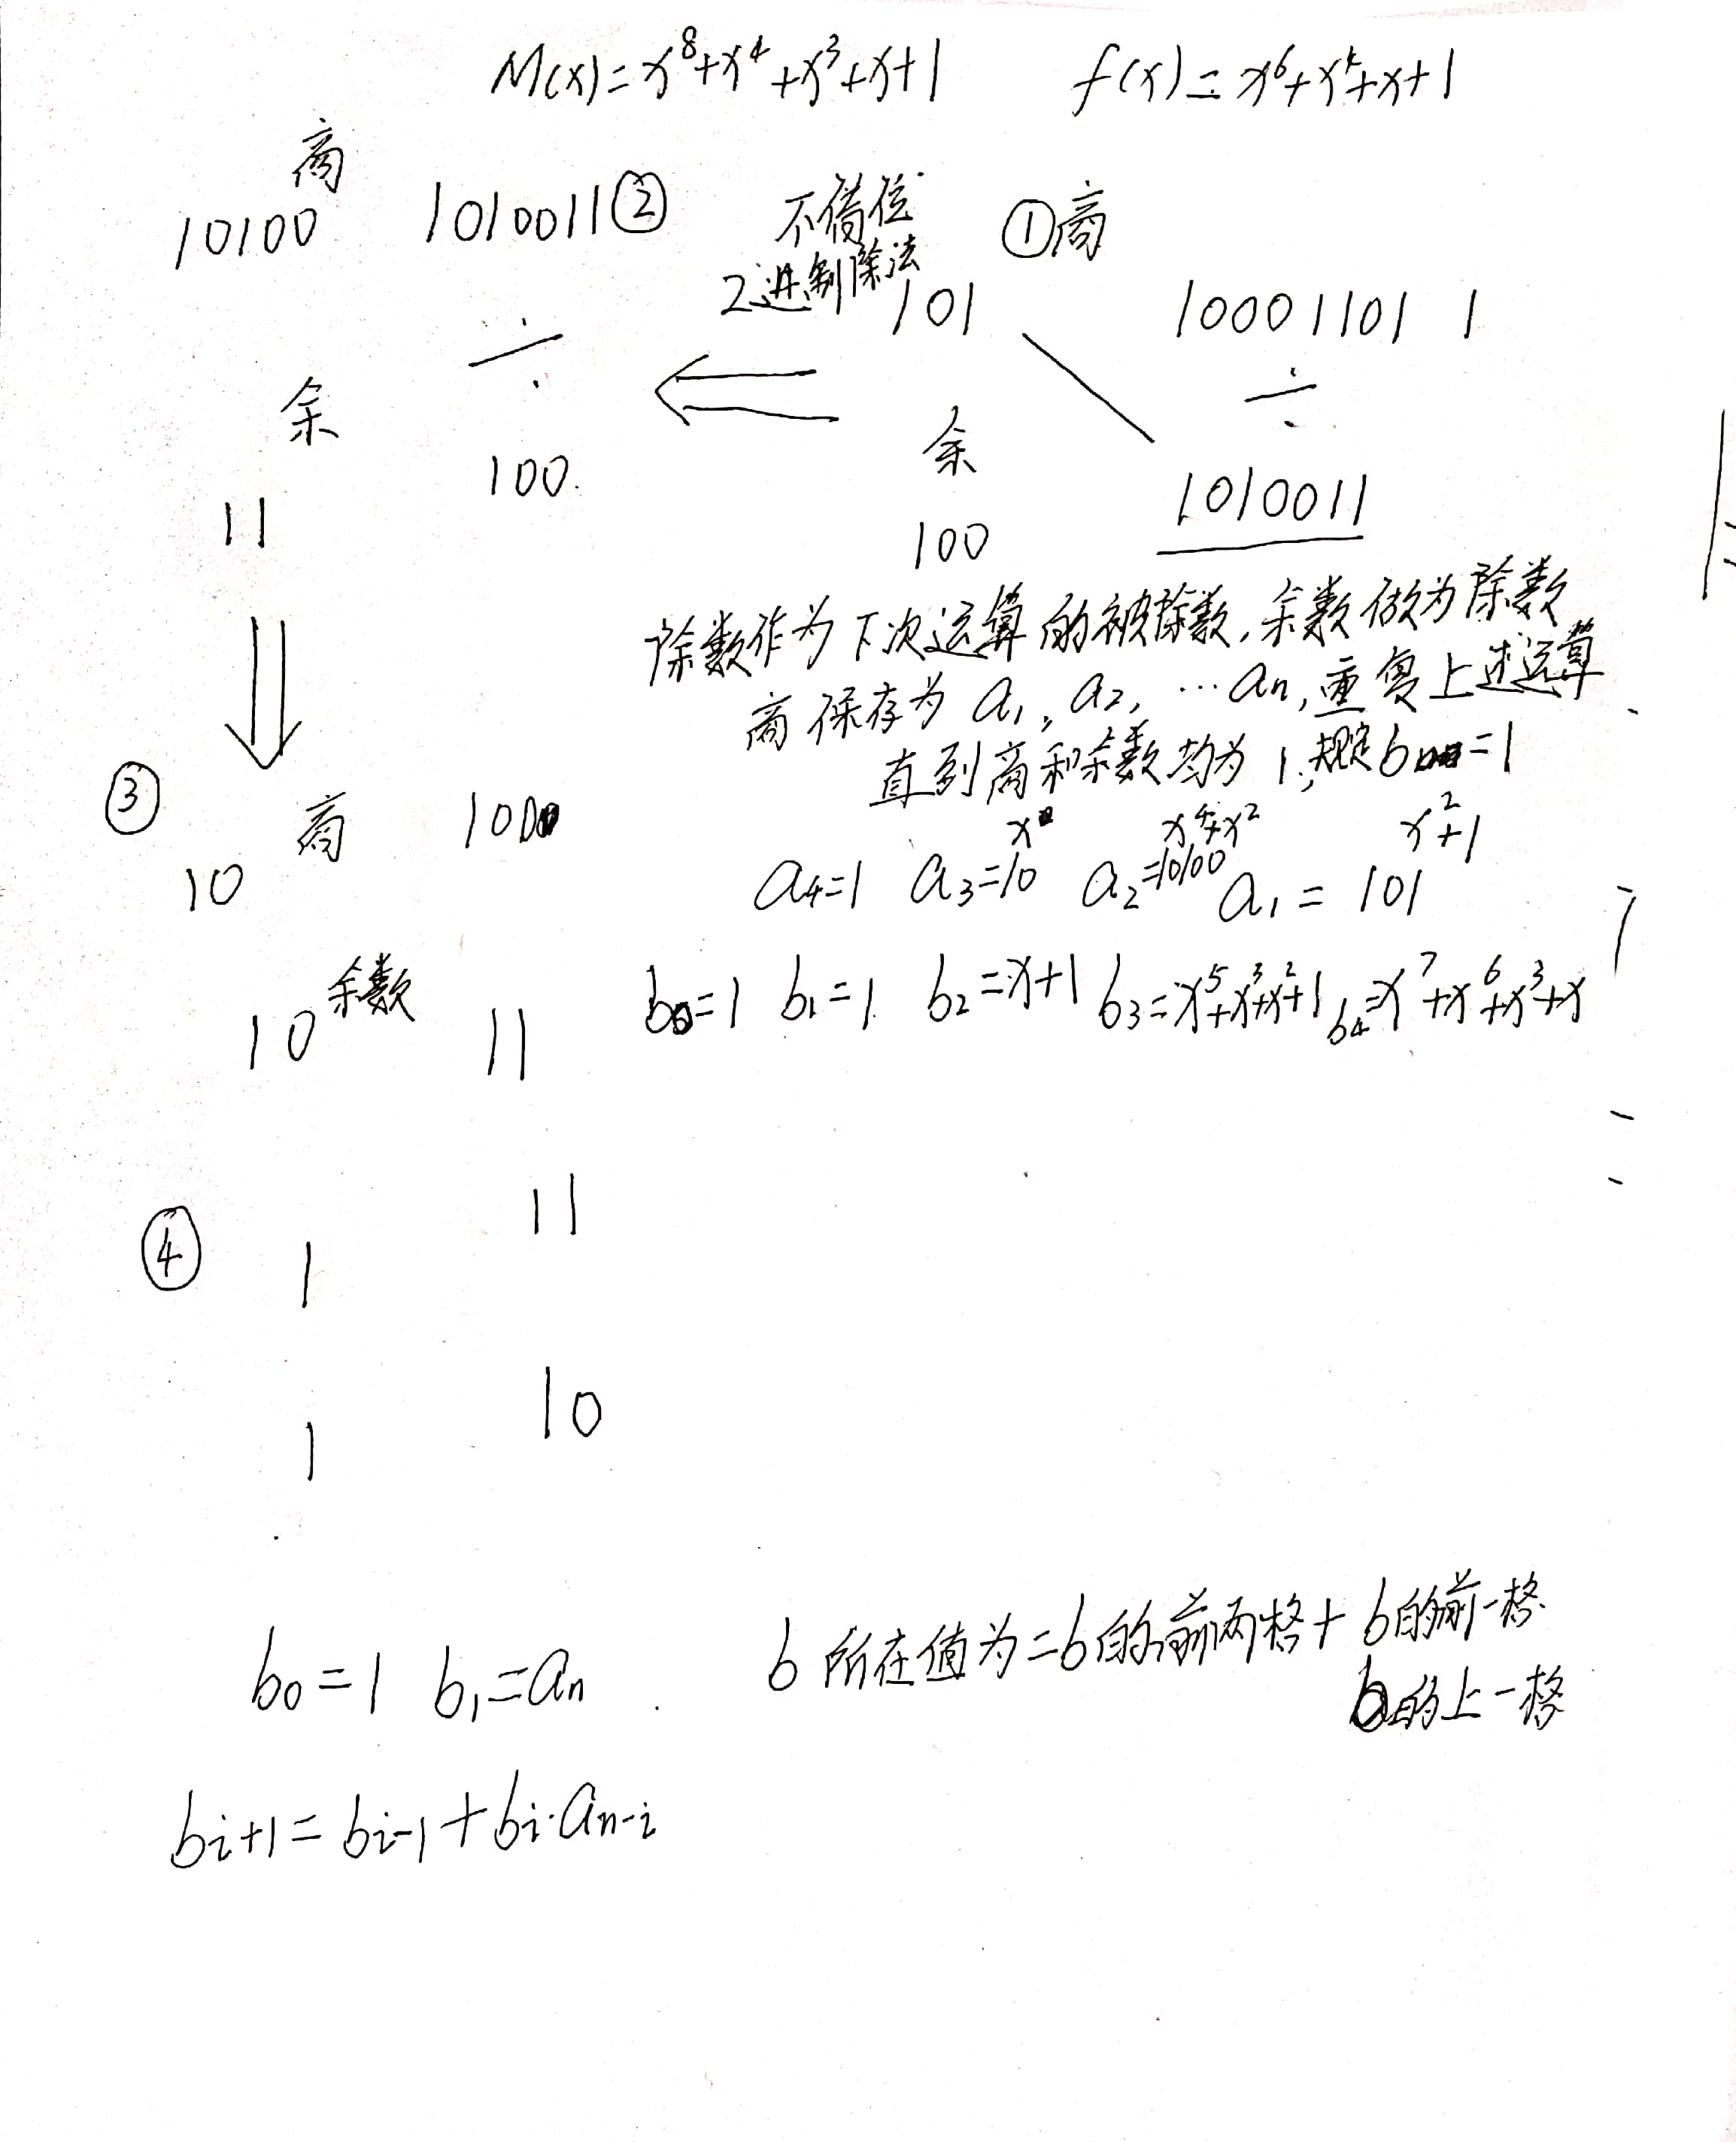 M(x)=x⁸+x⁴+x³+x+1 f(x)=x⁶+x⁴+x+1
商
10100 1010011 ②
÷
余 100
11
不借位
2进制除法
① 商
101 10001101 1
÷
余 1010011
100
除数作为下次运算的被除数,余数做为除数
商保存为 a₁, a₂, …aₙ,重复上述运算
直到商和余数均为1,规定b =1
③ 商 100
10
余数
10 11
x x⁴+x² x²+1
a₄=1 a₃=10 a₂=10100 a₁=101
b₀=1 b₁=1 b₂=x+1 b₃=x⁵+x³+x²+1 b₄=x⁷+x⁶+x³+x
④ 1 11
1 10
b₀=1 b₁=aₙ
b所在值为=b的前两格+b的前一格
的上一格
bᵢ₊₁=bᵢ₋₁+bᵢ·aₙ₋ᵢ